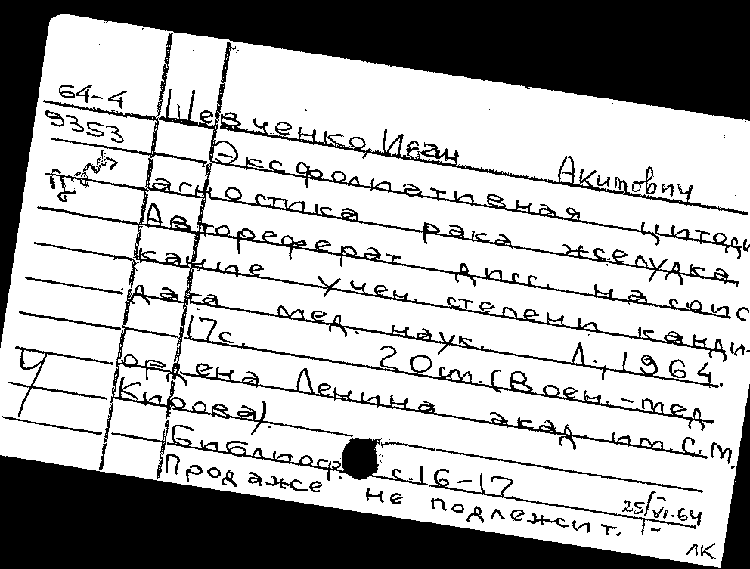 64-4
9353
Шевченко, Иван Акимович
Эксфолиативная цитоди
агностика рака желудка.
Автореферат дисс. на соис
кание учен. степени канди-
дата мед. наук. Л., 1964.
17с. 20см. (Воен.-мед
ордена Ленина акад. им. С.М.
Кирова).
Библиогр. с.16-17
Продаже не подлежит.
25/VI.64
ЛК